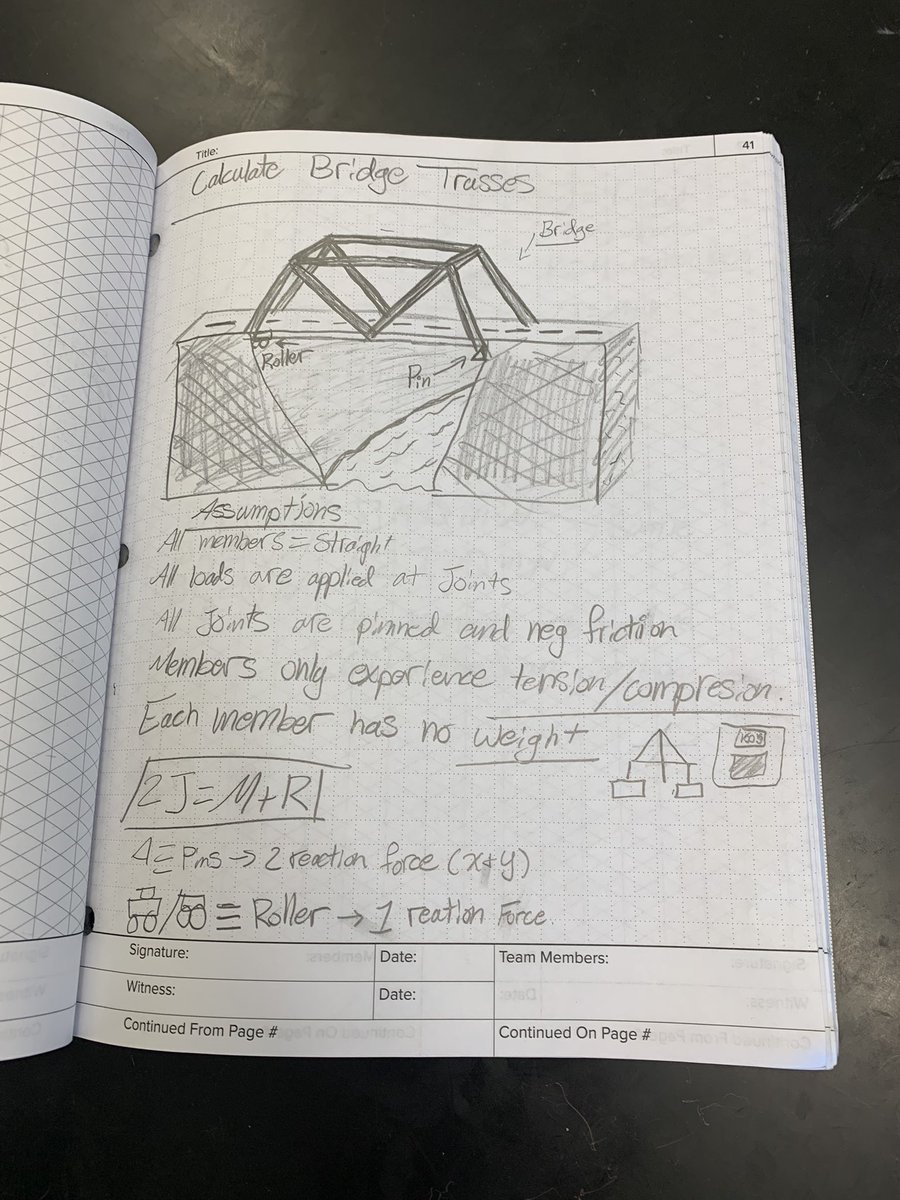 Title:
41
Calculate Bridge Trasses
Bridge
Roller
Pin
Assumptions
All members = Straight
All loads are applied at Joints
All Joints are pinned and neg friction
Members only experience tension/compresion.
Each member has no weight
2J=M+R
Δ ≡ Pins → 2 reaction force (x&y)
/ ≡ Roller → 1 reation Force
Signature:
Date:
Team Members:
Witness:
Date:
Continued From Page #
Continued On Page #